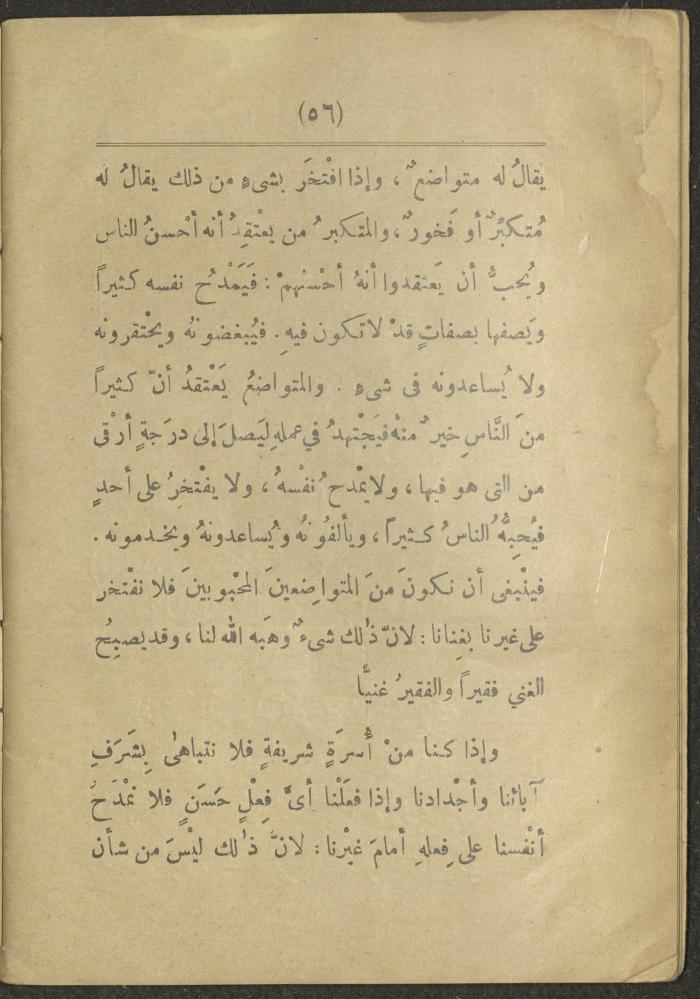 (٥٦)
يقالُ له متواضعٌ ، وإذا افْتخَر بشىءٍ من ذلك يقالُ له
مُتكبِّرٌ أو فَخورٌ ، والمتكبرُ من يعْتقِدُ أنه أحْسنُ الناس
ويُحبُّ أن يَعتقدوا أنهُ أحْسنهمْ : فَيَمْدحُ نفسه كثيراً
ويَصفها بصفاتٍ قدْ لاتكون فيهِ . فيُبغضونهُ ويحْتقرونه
ولا يُساعدونه فى شىءٍ . والمتواضعُ يَعْتقدُ أنّ كثيراً
منَ النَّاسِ خيرٌ منهُ فيَجْتهدُ في عملهِ لِيَصلَ إلى درَجةٍ أرْقى
من التى هو فيها ، ولا يمْدحُ نفْسهُ ، ولا يفْتخِرُ على أحدٍ
فيُحِبهُّ الناسُ كثيراً ، ويألفُونهُ ويُساعدونهُ ويخدمونه .
فينْبغى أن نكونَ منَ المتواضِعينَ المحْبوبينَ فلا نفْتخر
على غيرنا بغِنانا : لانّ ذٰلك شىءٌ وهَبه الله لنا ، وقد يصبِحُ
الغني فقيراً والفقيرُ غنيًّا
وإذا كنا منْ أُسرَةٍ شريفةٍ فلا نتباهىٰ بِشَرَفِ
آبائنا وأجْدادنا وإذا فعَلْنا أىَّ فِعْلٍ حَسَنٍ فلا نمْدَحُ
أنْفسنا على فِعلهِ أمامَ غيْرنا : لانّ ذٰلك ليْسَ من شأن